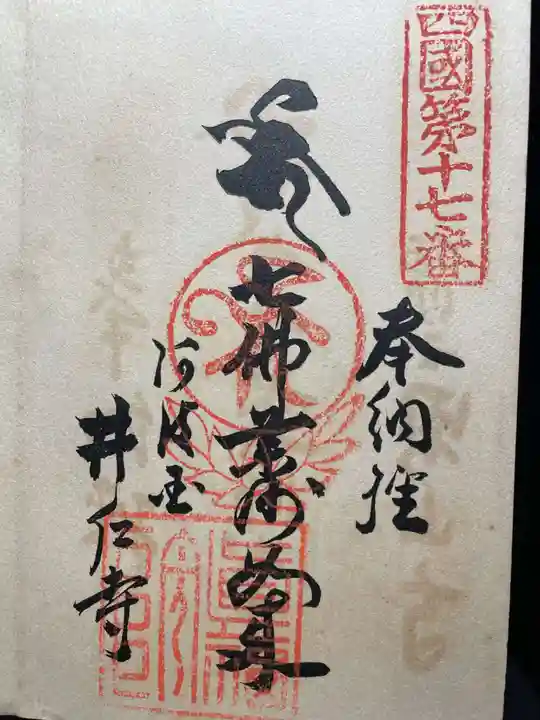 四國第十七番
奉納經
七佛薬師如来
阿波国
井戸寺